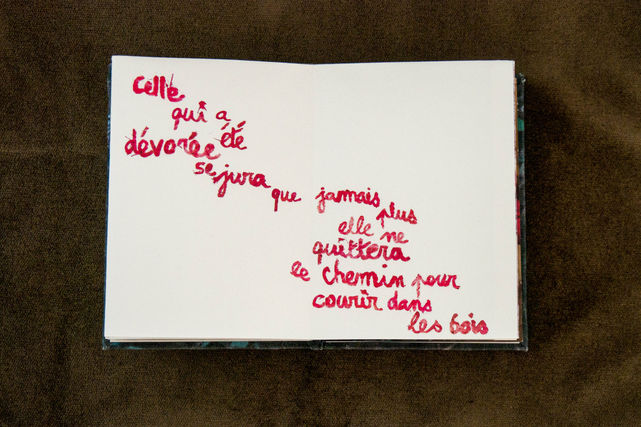 Celle
qui a
été
dévorée
se jura
que jamais
plus
elle ne
quittera
le chemin pour
courir dans
les bois